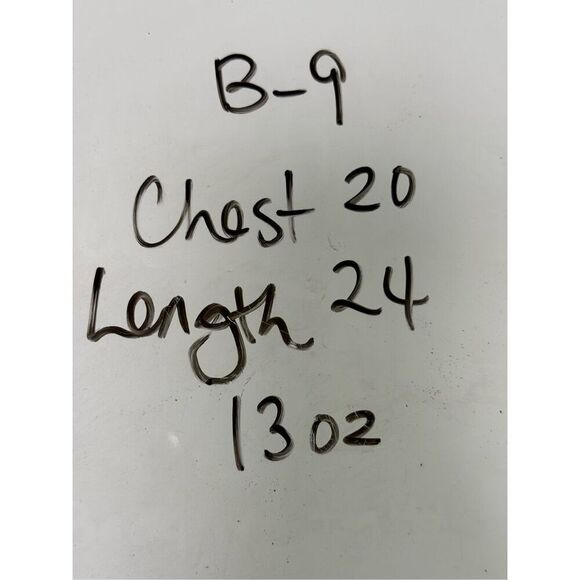 B-9
Chest 20
Length 24
13 oz